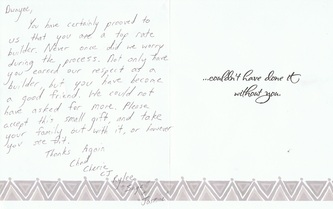 You have certainly proved to
us that you are a top rate
builder. Never once did we worry
during the process. Not only have
you earned our respect as a
builder, but you have become
a good friend. We could not
have asked for more. Please
accept this small gift, and take
your family out with it, or however
you see fit.
Thanks Again
Chad
Cherie
CJ
Kylee
...couldn't have done it
without you.